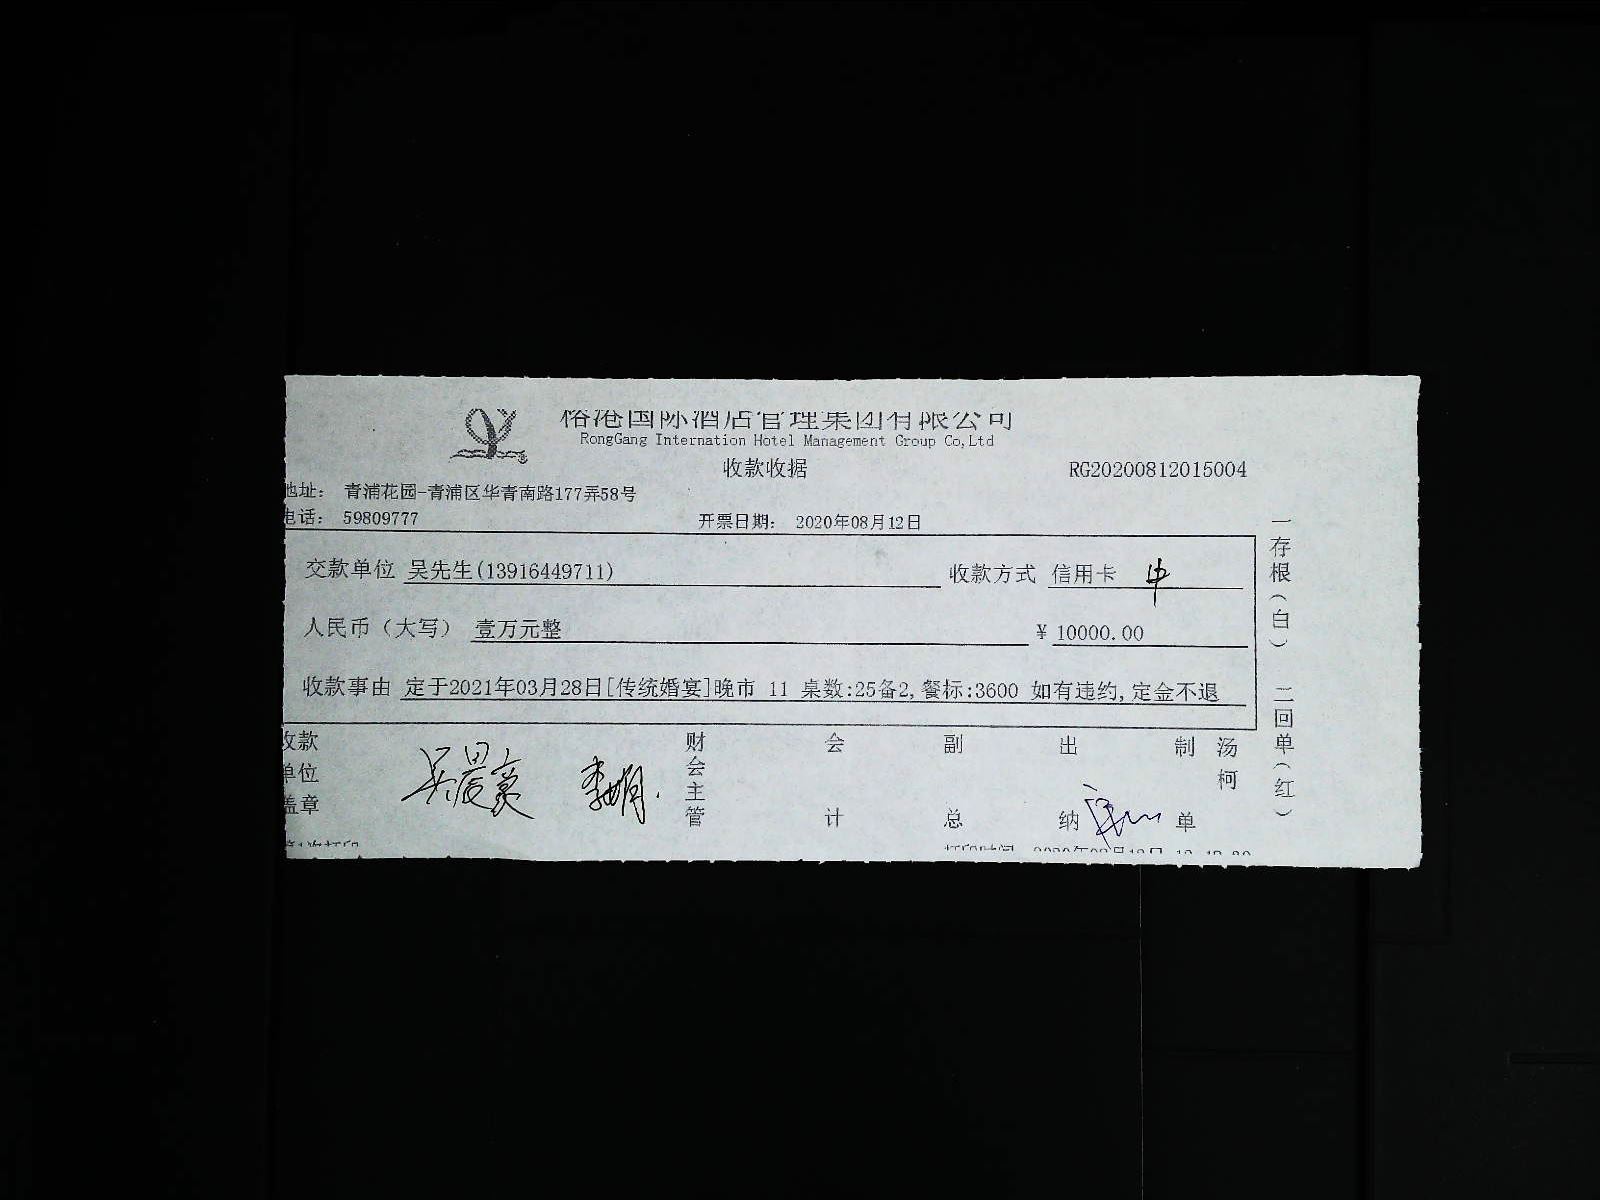 榕港国际酒店管理集团有限公司
RongGang Internation Hotel Management Group Co,Ltd
收款收据 RG20200812015004
地址: 青浦花园-青浦区华青南路177弄58号
电话: 59809777 开票日期: 2020年08月12日
交款单位 吴先生(13916449711) 收款方式 信用卡 中
人民币(大写) 壹万元整 ¥ 10000.00
收款事由 定于2021年03月28日[传统婚宴]晚市 11 桌数:25备2,餐标:3600 如有违约,定金不退
收款单位盖章 吴晨豪 财会主管 会计 副总 出纳 制单 汤柯
第1次打印 打印时间
一存根(白) 二回单(红)